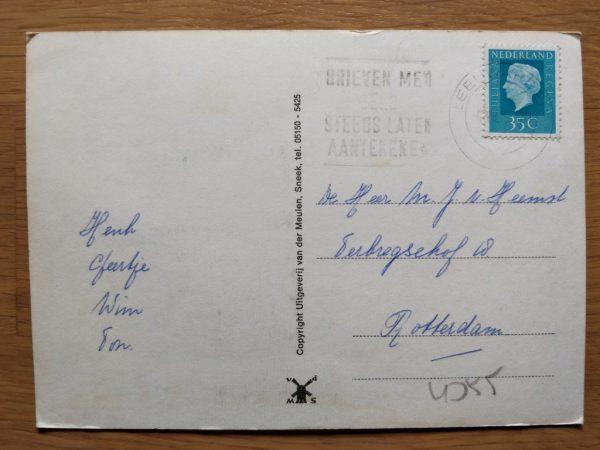 BRIEVEN MET
GELD
STEEDS LATEN
AANTEKENEN
LEE
NEDERLAND
JULIANA
REGINA
35 C
De Heer M. J. v. Heemst
Terbregsehof 18
Rotterdam
4085
Henk
Geertje
Wim
Ton.
Copyright Uitgeverij van der Meulen, Sneek, tel. 05150 - 5425
v d
M S